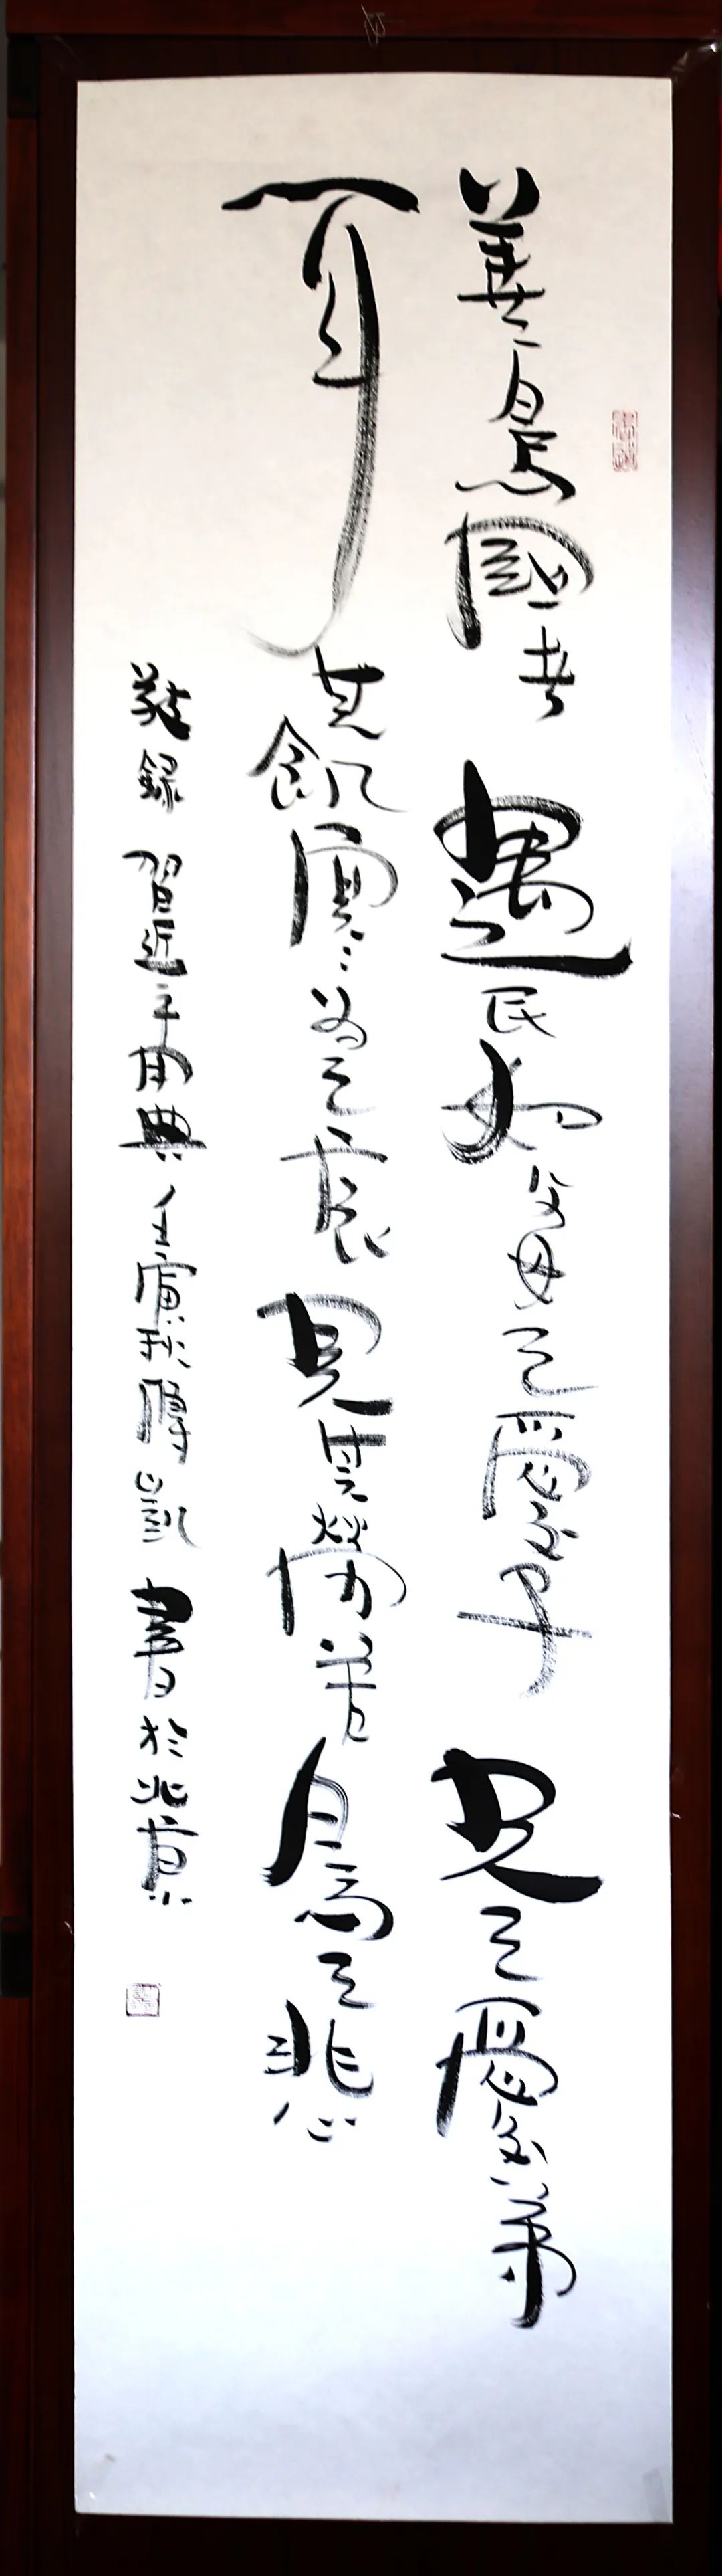 善為國者遇民如父母之愛子兄之愛弟
聞其飢寒為之哀見其勞苦為之悲
敬録習近平用典壬寅秋凱書於北京